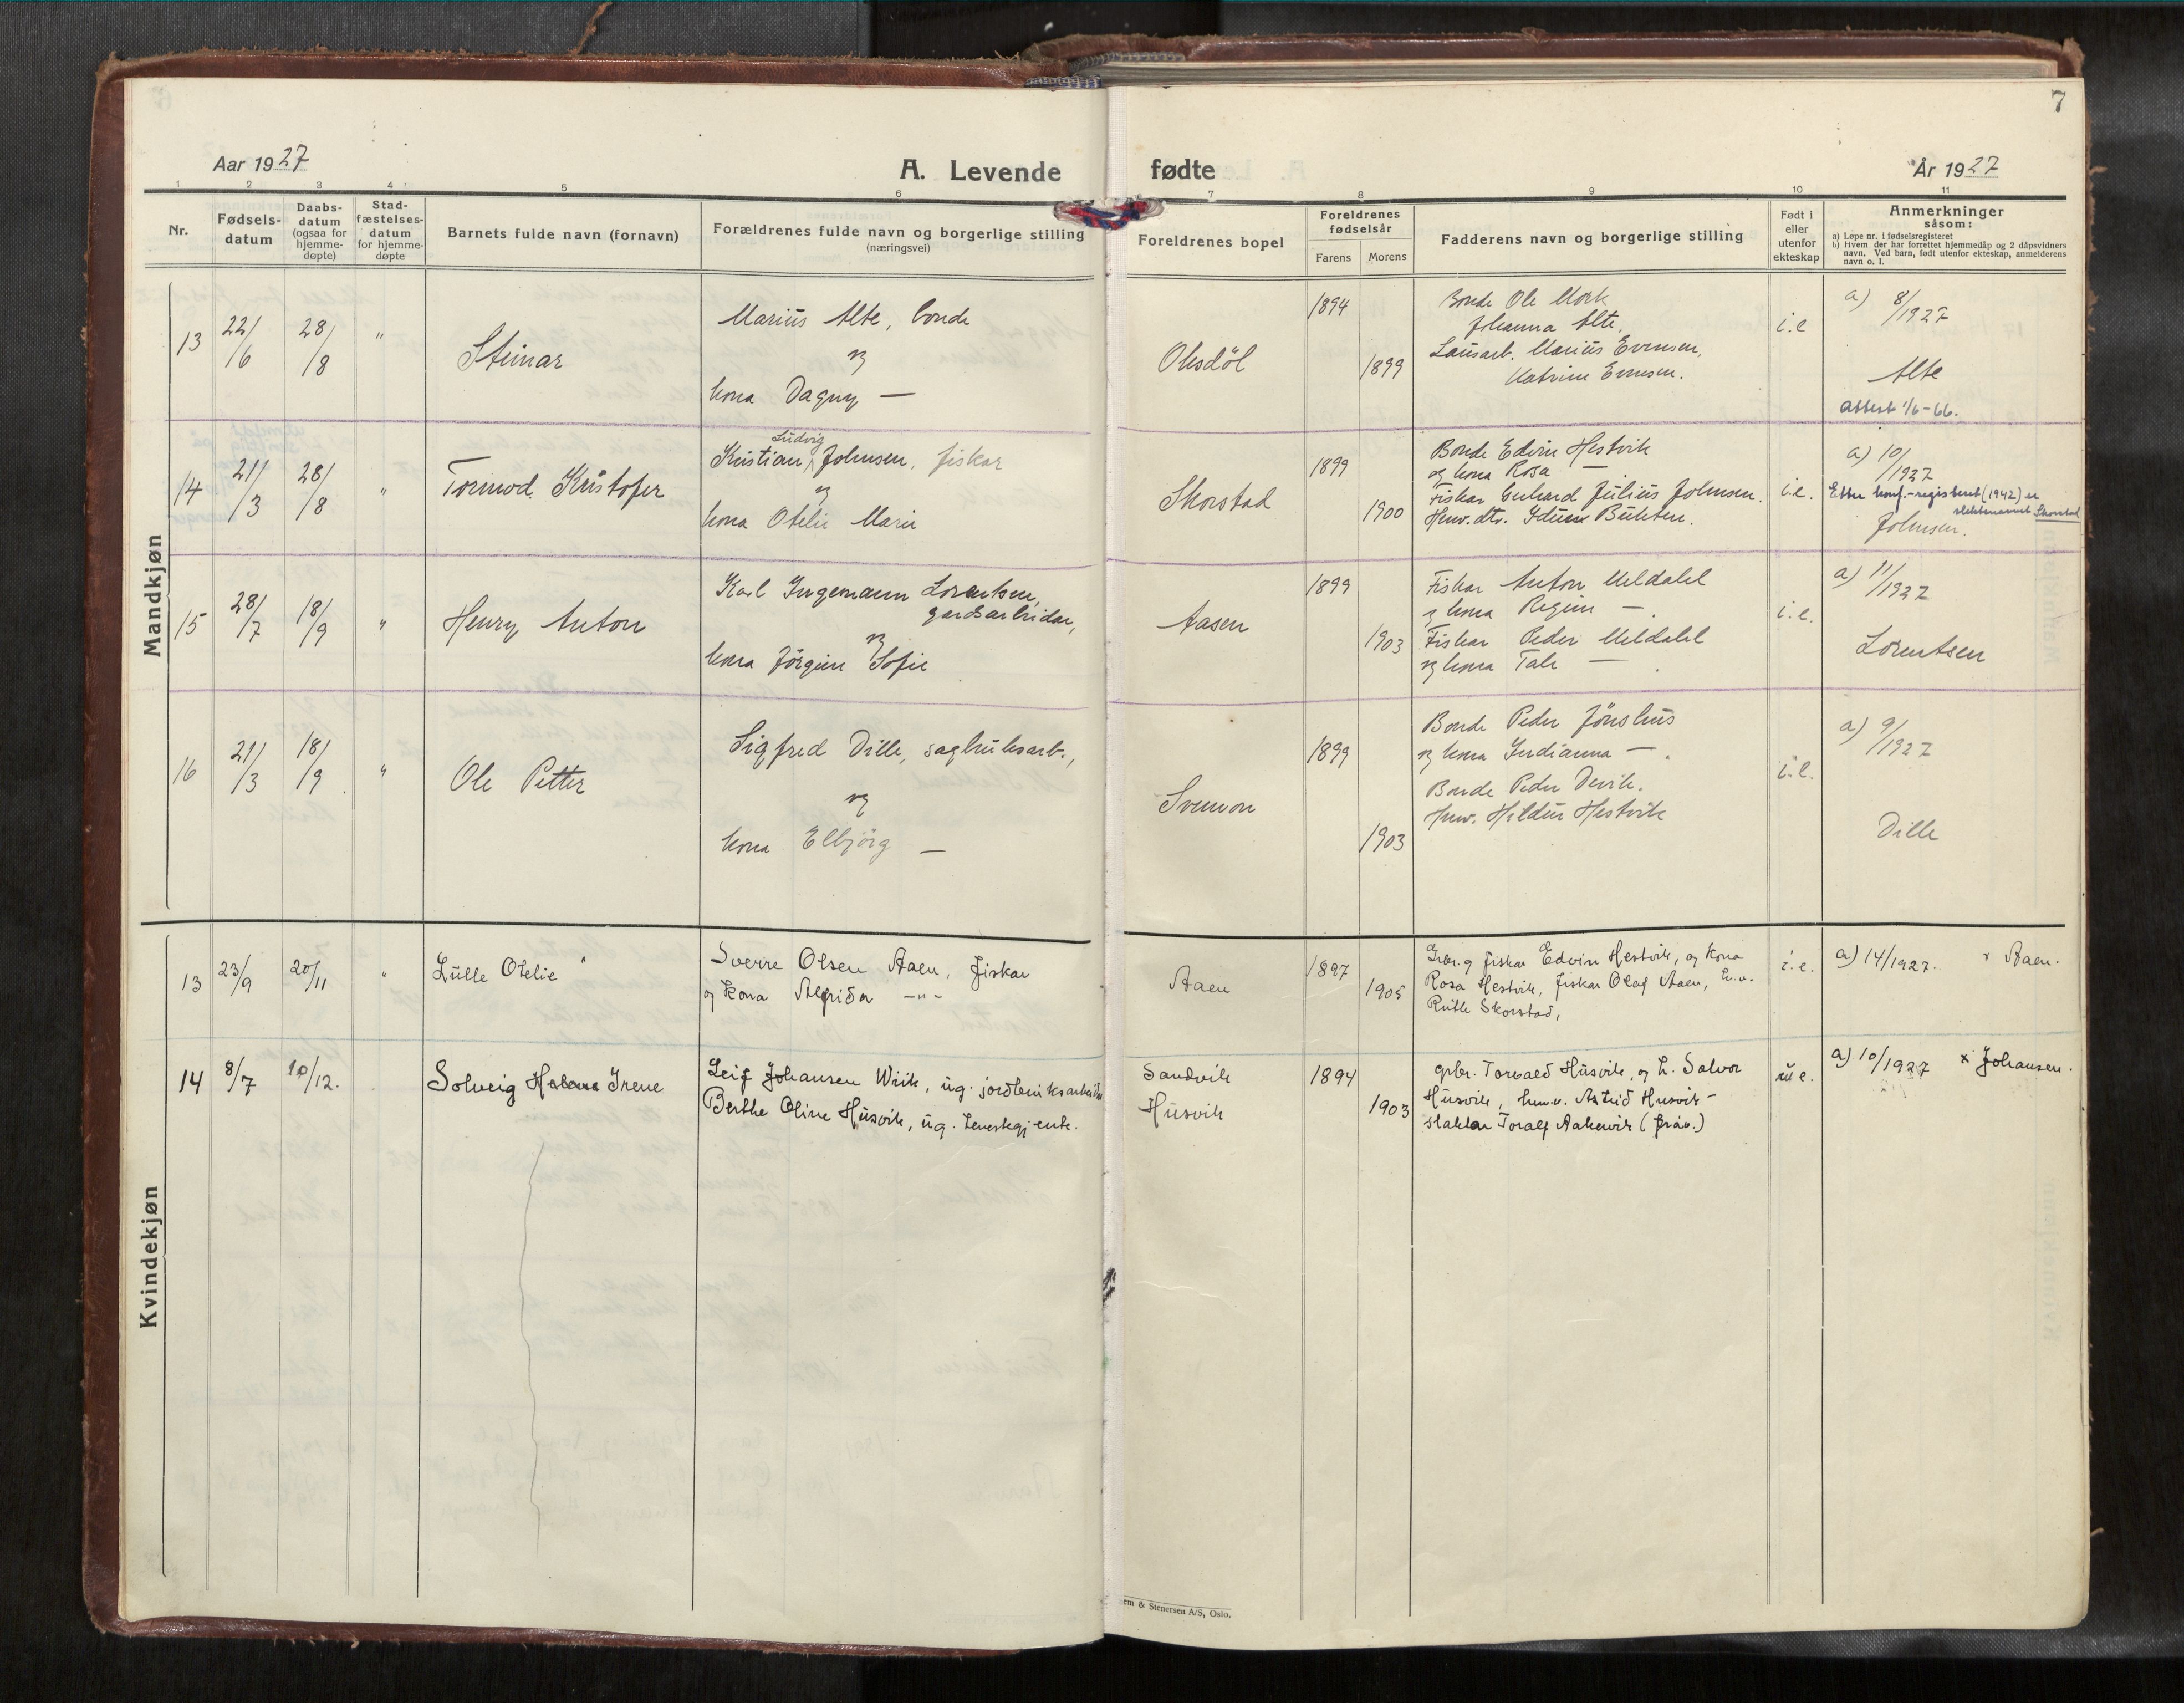 7
Aar 1927
A. Levende fødte
År 1927
1 2 3 4 5 6 7 8 9 10 11
Nr.
Fødsels-
datum
Daabs-
datum
(ogsaa for
hjemme-
døpte)
Stad-
fæstelses-
datum
for hjemme-
døpte
Barnets fulde navn (fornavn)
Forældrenes fulde navn og borgerlige stilling
(næringsvei)
Foreldrenes bopel
Foreldrenes
fødselsår
Farens
Morens
Fadderens navn og borgerlige stilling
Født i
eller
utenfor
ekteskap
Anmerkninger
såsom:
a) Løpe nr. i fødselsregisteret
b) Hvem der har forrettet hjemmedåp og 2 dåpsvidners
navn. Ved barn, født utenfor ekteskap, anmelderens
navn o. l.
Mandkjøn
13
22/6
28/8
"
Steinar
Marius Alte, bonde
og
kona Dagny —
Olsdöl
1894
1899
Bonde Ole Mork
Johanna Alte,
Lausarb. Marius Evensen,
Katrine Evensen.
i.e
a) 8/1927
Alte
Attest 1/6-66.
14
21/3
28/8
"
Tormod Kristofer
Ludvig
Kristian Johnsen, fiskar
og
kona Otelie Marie
Skorstad
1899
1900
Bonde Edvin Hestvik
og kona Rosa —
Fiskar Gerhard Julius Johnsen.
Husv. dtr. Idunn Buketen.
i.e.
a) 10/1927
Etter konf.-registeret (1942) er
slektsnavnet Skorstad
Johnsen.
15
28/7
18/9
"
Henry Anton
Karl Ingemann Lorentsen,
gardsarbeidar,
og
kona Jørgine Sofie
Aasen
1899
1903
Fiskar Anton Meldalel
og kona Regine —.
Fiskar Peder Meldalel
og kona Tale —.
i.e.
a) 11/1927
Lorentsen
16
21/3
18/9
"
Ole Petter
Sigfred Dille, sagbruksarb.,
og
kona Elbjörg —
Svenon
1899
1903
Bonde Peder Jönshus
og kona Indianna —.
Bonde Peder Devik.
Husv. Hildur Hestvik
i.e.
a) 9/1927
Dille
Kvindekjøn
13
23/9
20/11
"
Lulle Otelie
Sverre Olsen Aaen, fiskar
og kona Alfrida —"—
Aaen
1897
1905
Grbr. og fiskar Edvin Hestvik, og kona
Rosa Hestvik, fiskar Olaf Aaen, h.v.
Ruth Skorstad,
i.e.
a) 14/1927. x Aaen.
14
8/7
10/12.
Solveig Helene Irene
Leif Johansen Wiik, ug. jordbruksarbeider
Berthe Oline Husvik, ug. tenestegjente.
Sandvik
Husvik
1894
1903
gbr. Torvald Husvik, og h. Salvor
Husvik, hus.v. Astrid Husvik -
slaktar Toralf Aakervik (fråv.)
u e.
a) 10/1927 x Johansen.
em & Stenersen A/S, Oslo.